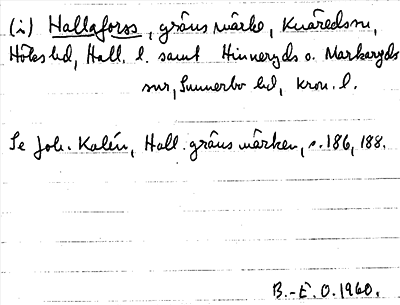 (i) Hallaforss, gränsmärke, Knäredssn,
Höks hd, Hall. l. samt Hinneryds o. Markaryds
snr, Sunnerbo hd, Kron. l.
Se Joh. Kalén, Hall. gränsmärken, s. 186, 188.
B.-E. O. 1960.